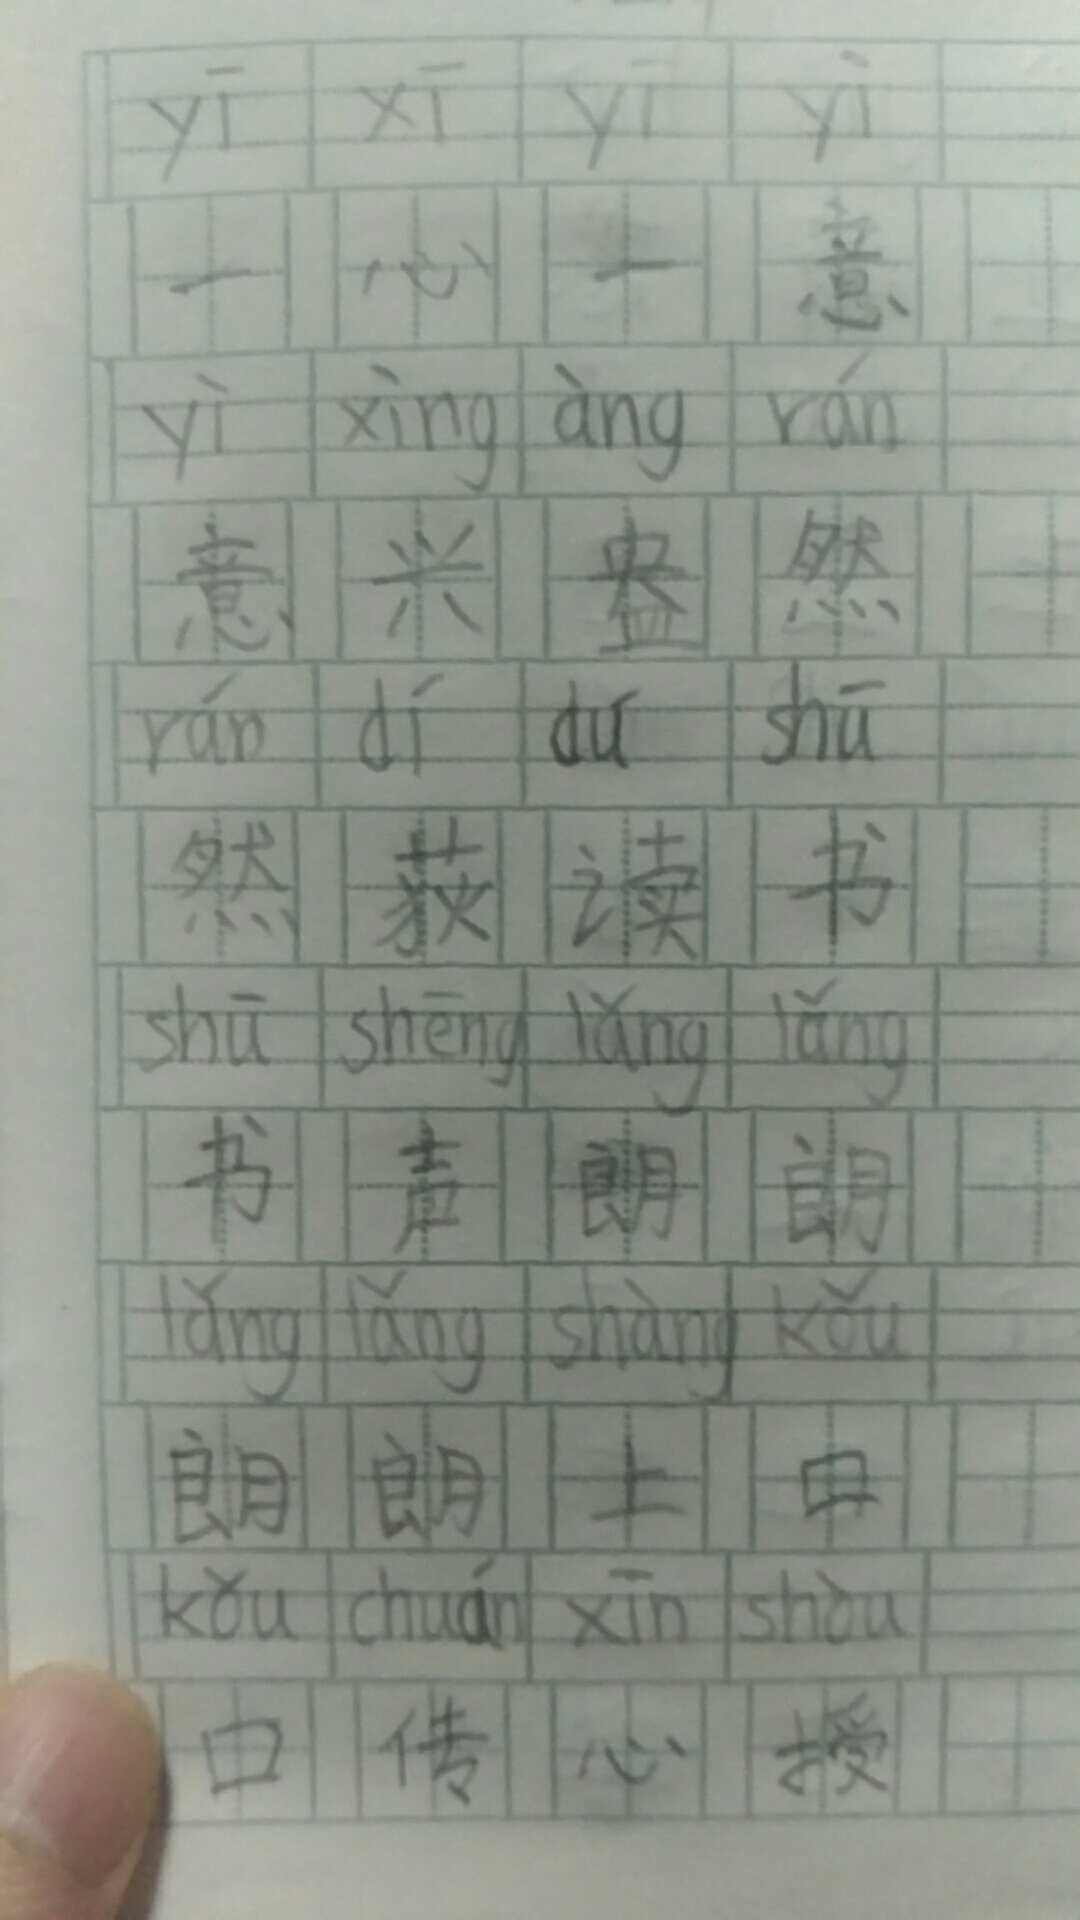 yī xī yī yì
一心一意
yì xìng àng rán
意兴盎然
rán dí dú shū
然荻读书
shū shēng lǎng lǎng
书声朗朗
lǎng lǎng shàng kǒu
朗朗上口
kǒu chuán xīn shòu
口传心授